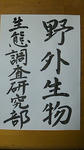 野外生物
生態調査研究部